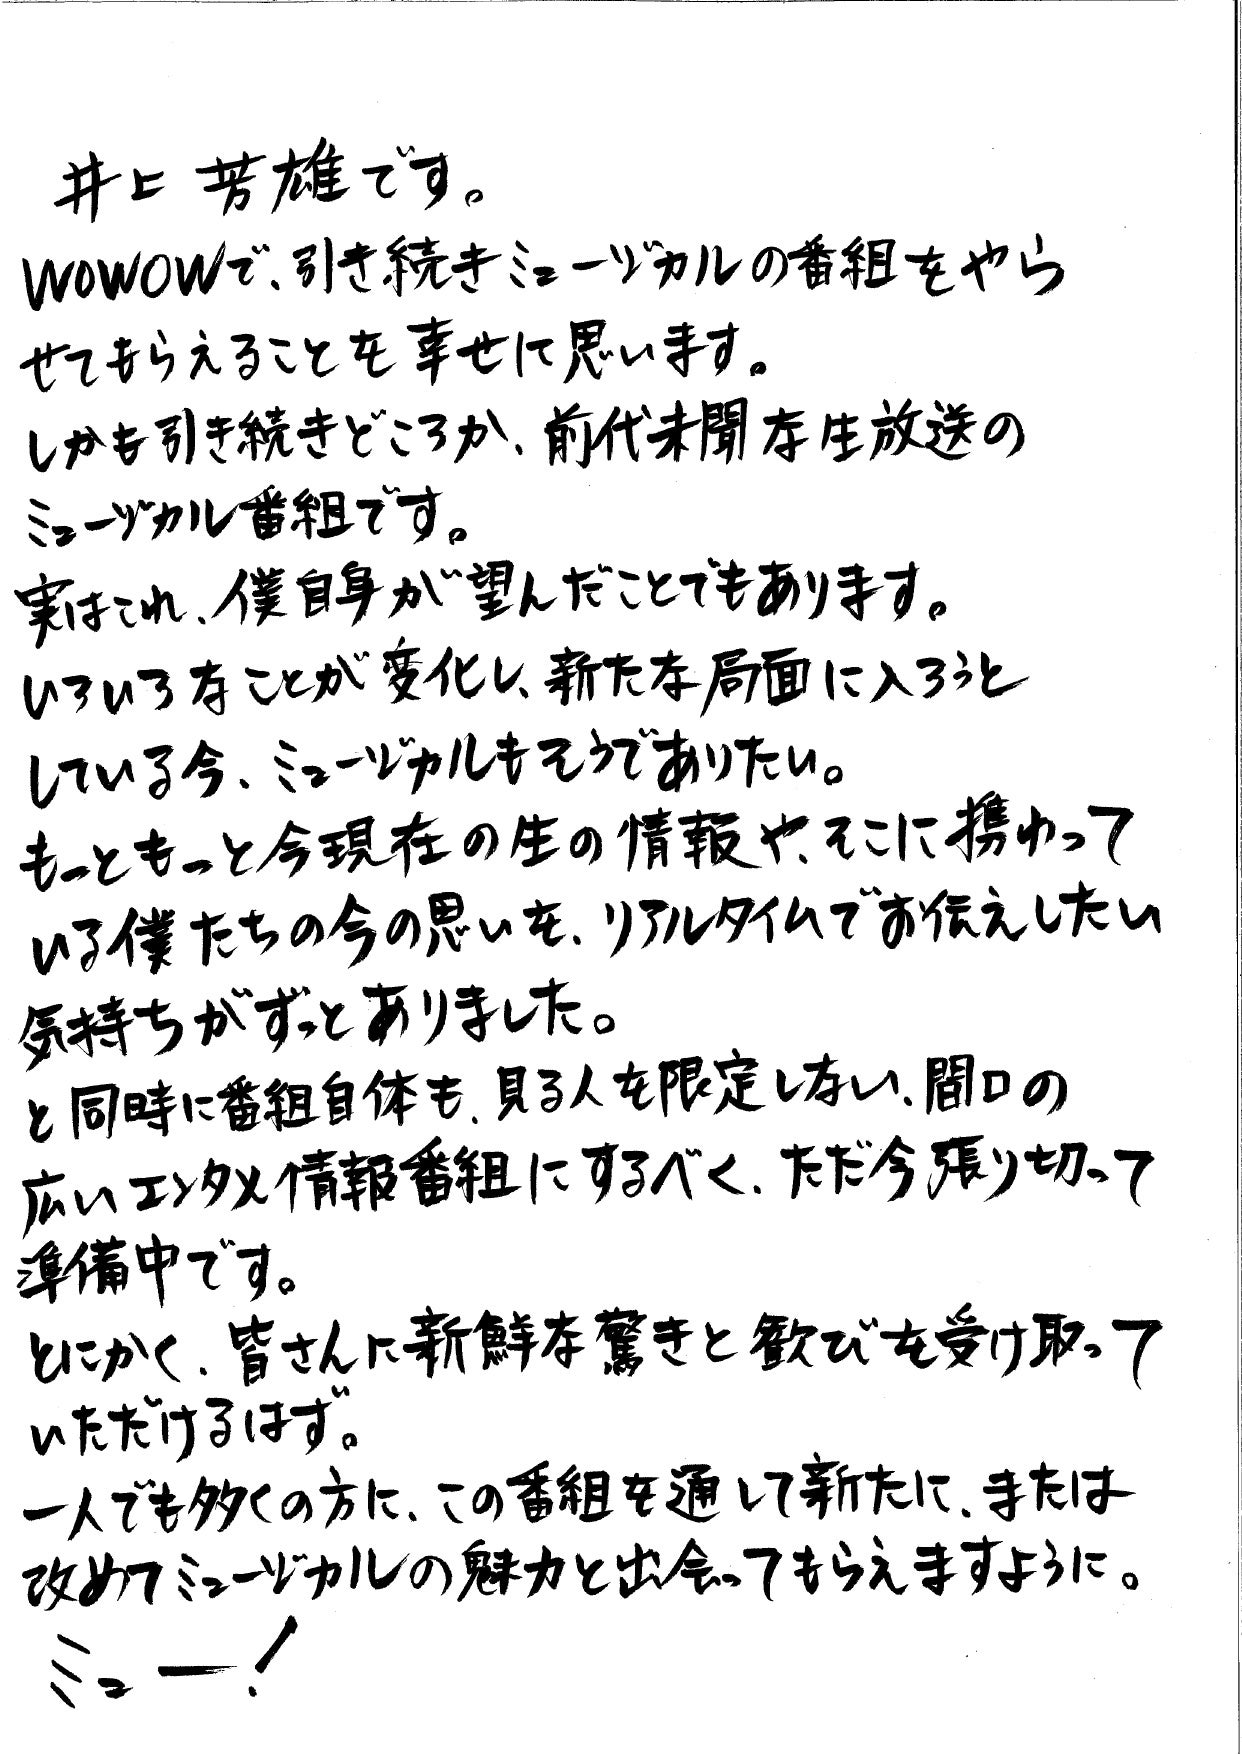 井上芳雄です。
WOWOWで、引き続きミュージカルの番組をやら
せてもらえることを幸せに思います。
しかも引き続きどころか、前代未聞な生放送の
ミュージカル番組です。
実はこれ、僕自身が望んだことでもあります。
いろいろなことが変化し、新たな局面に入ろうと
している今、ミュージカルもそうでありたい。
もっともっと今現在の生の情報や、そこに携わって
いる僕たちの今の思いを、リアルタイムでお伝えしたい
気持ちがずっとありました。
と同時に番組自体も、見る人を限定しない、間口の
広いエンタメ情報番組にするべく、ただ今張り切って
準備中です。
とにかく、皆さんに新鮮な驚きと歓びを受け取って
いただけるはず。
一人でも多くの方に、この番組を通して新たに、または
改めてミュージカルの魅力と出会ってもらえますように。
ミュー!